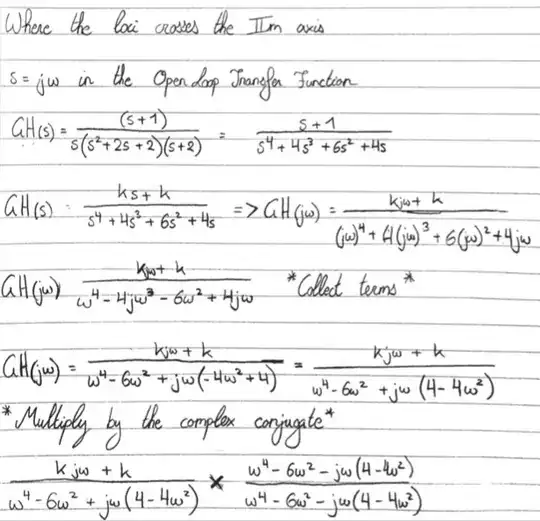 Where the loci crosses the IIm axis
s = jω in the Open Loop Transfer Function
GH(s) = (s+1) / s(s²+2s+2)(s+2) = s+1 / s⁴+4s³+6s²+4s
GH(s) = ks+k / s⁴+4s³+6s²+4s => GH(jω) = kjω+k / (jω)⁴+4(jω)³+6(jω)²+4jω
GH(jω) kjω+k / ω⁴-4jω³-6ω²+4jω *Collect terms*
GH(jω) = kjω+k / ω⁴-6ω²+jω(-4ω²+4) = kjω+k / ω⁴-6ω²+jω(4-4ω²)
*Multiply by the complex conjugate*
kjω+k / ω⁴-6ω²+jω(4-4ω²) × ω⁴-6ω²-jω(4-4ω²) / ω⁴-6ω²-jω(4-4ω²)